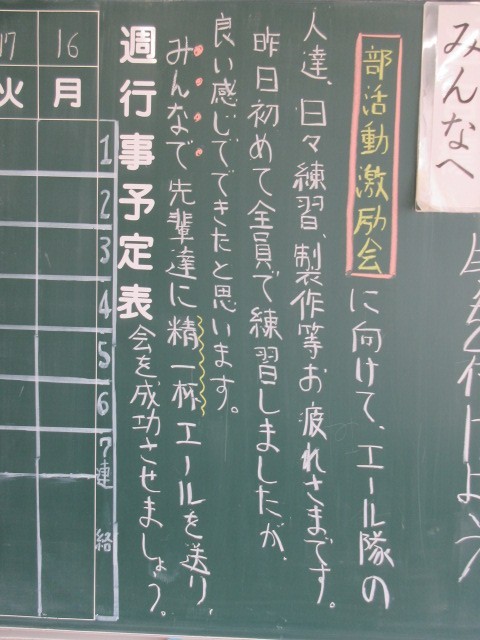 みんなへ
部活動激励会に向けて、エール隊の
人達、日々練習、製作等お疲れさまです。
昨日初めて全員で練習しましたが、
良い感じでできたと思います。
みんなで先輩達に精一杯エールを送り、
会を成功させましょう。
週行事予定表
16
月
17
火
1
2
3
4
5
6
7
連絡